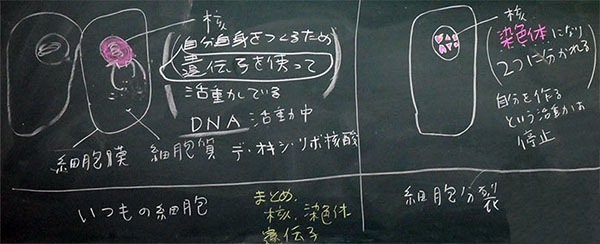 核
自分自身をつくるため
遺伝子を使って
活動している
DNA 活動中
細胞膜 細胞質 デオキシ・リボ核酸
いつもの細胞
まとめ.
核、染色体
遺伝子
核
染色体になり
2つに分かれる
自分を作る
という活動が
停止
細胞分裂